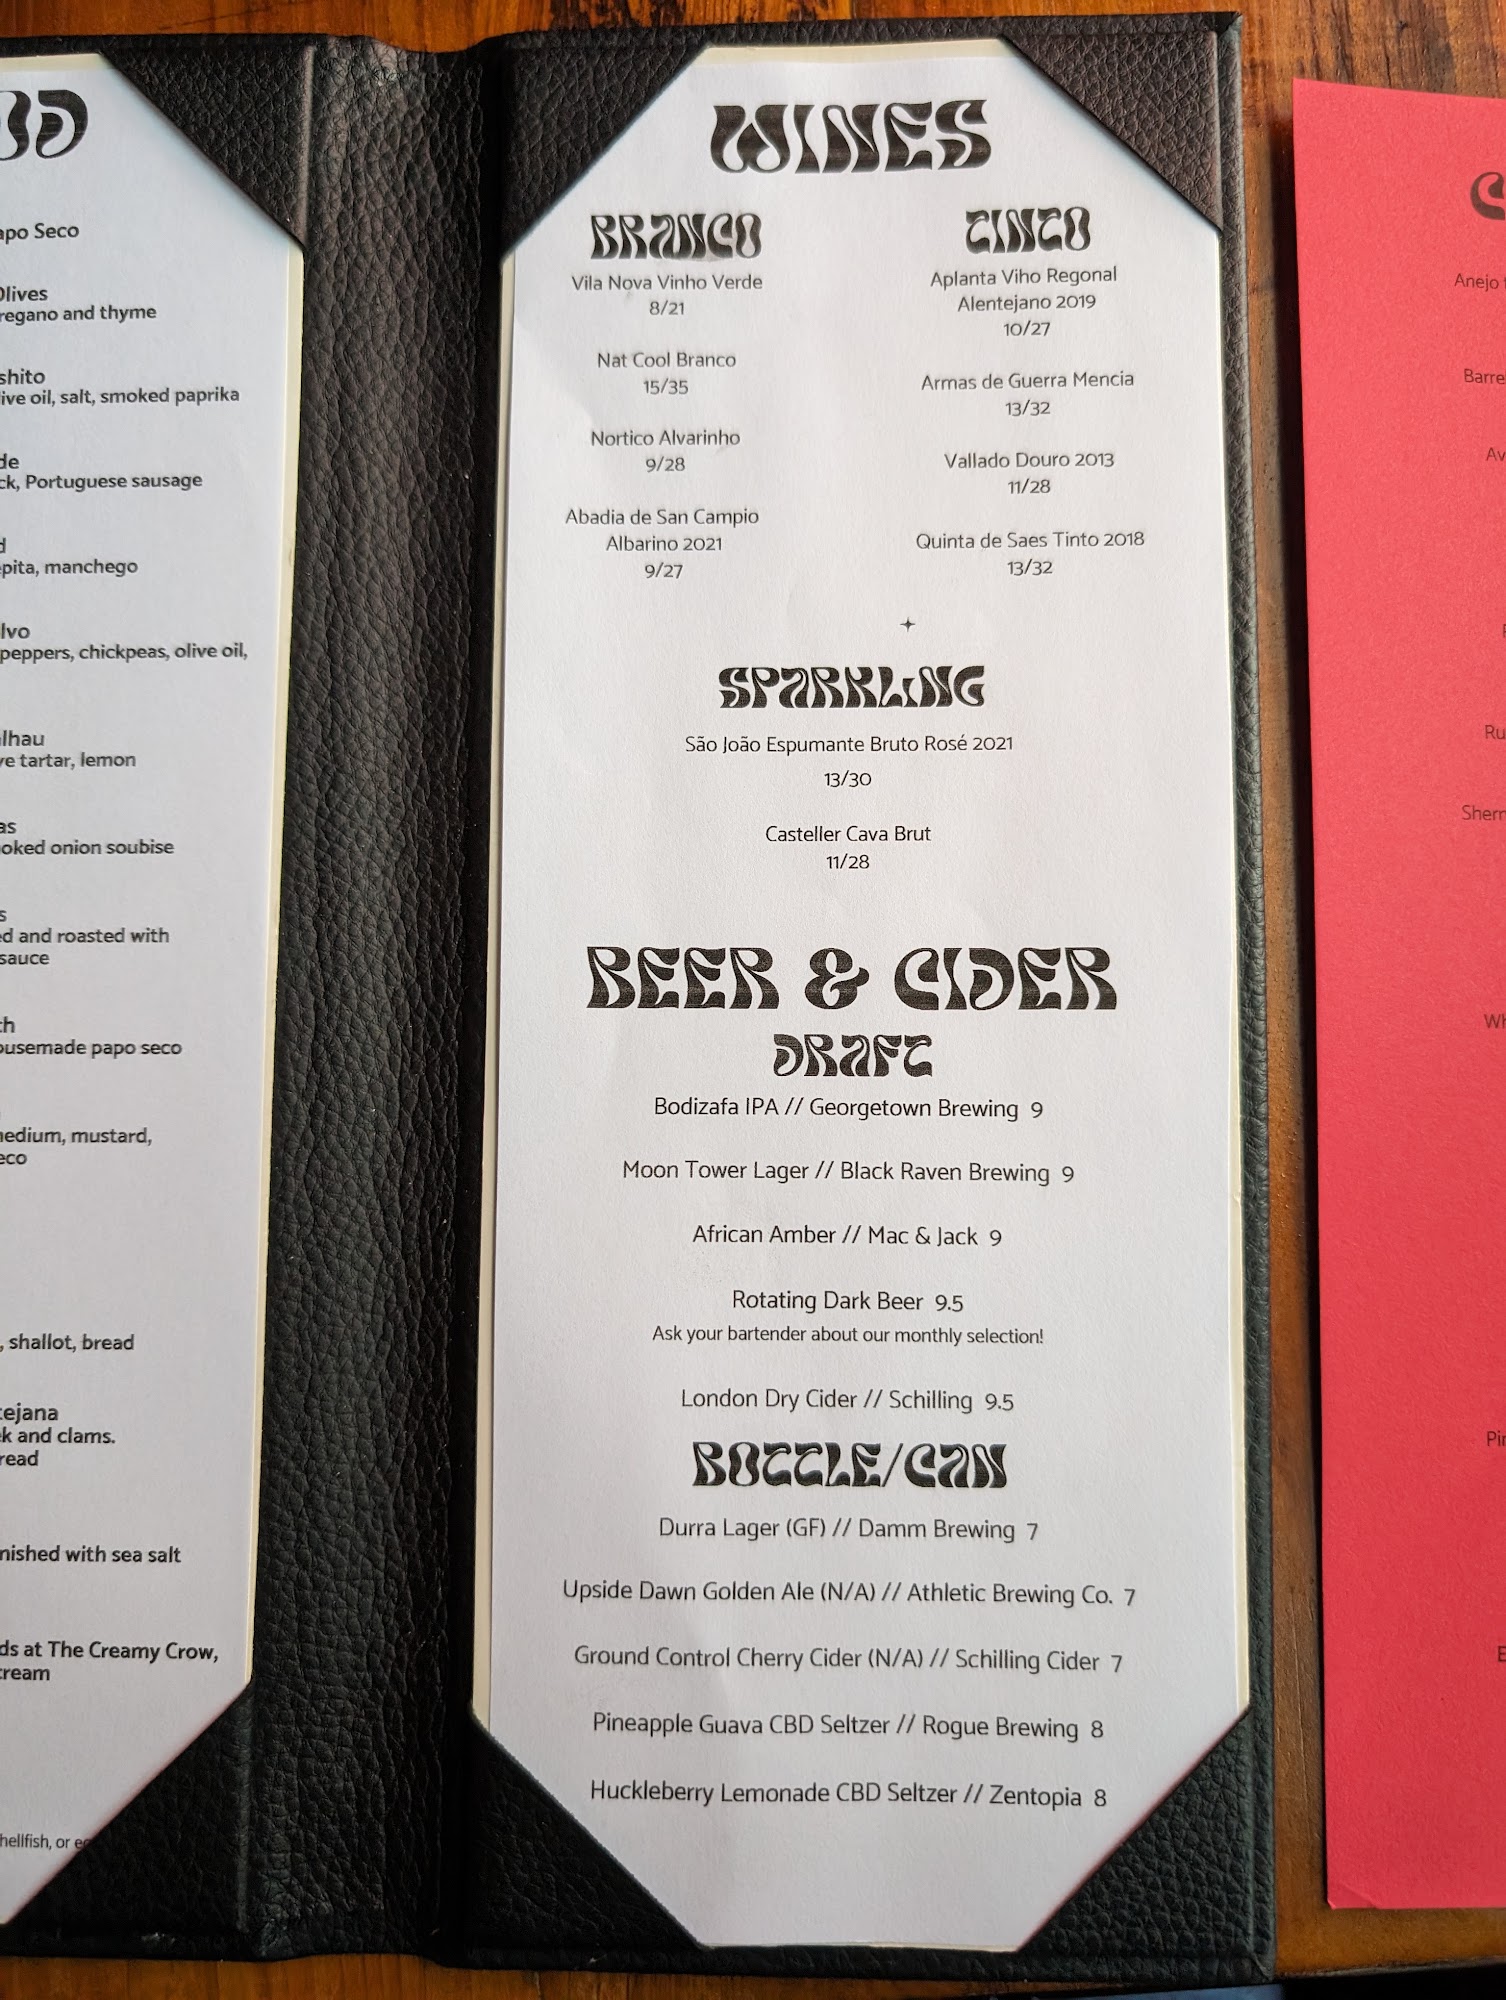 apo Seco
Olives
regano and thyme
shito
ive oil, salt, smoked paprika
de
ck, Portuguese sausage
d
epita, manchego
lvo
peppers, chickpeas, olive oil,
alhau
ve tartar, lemon
as
oked onion soubise
s
ed and roasted with
sauce
ch
ousemade papo seco
nedium, mustard,
eco
, shallot, bread
tejana
k and clams.
read
nished with sea salt
ds at The Creamy Crow,
cream
hellfish, or eg
WINES
BRANCO
Vila Nova Vinho Verde
8/21
Nat Cool Branco
15/35
Nortico Alvarinho
9/28
Abadia de San Campio
Albarino 2021
9/27
TINTO
Aplanta Viho Regonal
Alentejano 2019
10/27
Armas de Guerra Mencia
13/32
Vallado Douro 2013
11/28
Quinta de Saes Tinto 2018
13/32
SPARKLING
São João Espumante Bruto Rosé 2021
13/30
Casteller Cava Brut
11/28
BEER & CIDER
DRAFT
Bodizafa IPA // Georgetown Brewing 9
Moon Tower Lager // Black Raven Brewing 9
African Amber // Mac & Jack 9
Rotating Dark Beer 9.5
Ask your bartender about our monthly selection!
London Dry Cider // Schilling 9.5
BOTTLE/CAN
Durra Lager (GF) // Damm Brewing 7
Upside Dawn Golden Ale (N/A) // Athletic Brewing Co. 7
Ground Control Cherry Cider (N/A) // Schilling Cider 7
Pineapple Guava CBD Seltzer // Rogue Brewing 8
Huckleberry Lemonade CBD Seltzer // Zentopia 8
Anejo
Barre
Av
Ru
Sherr
Wh
Pin